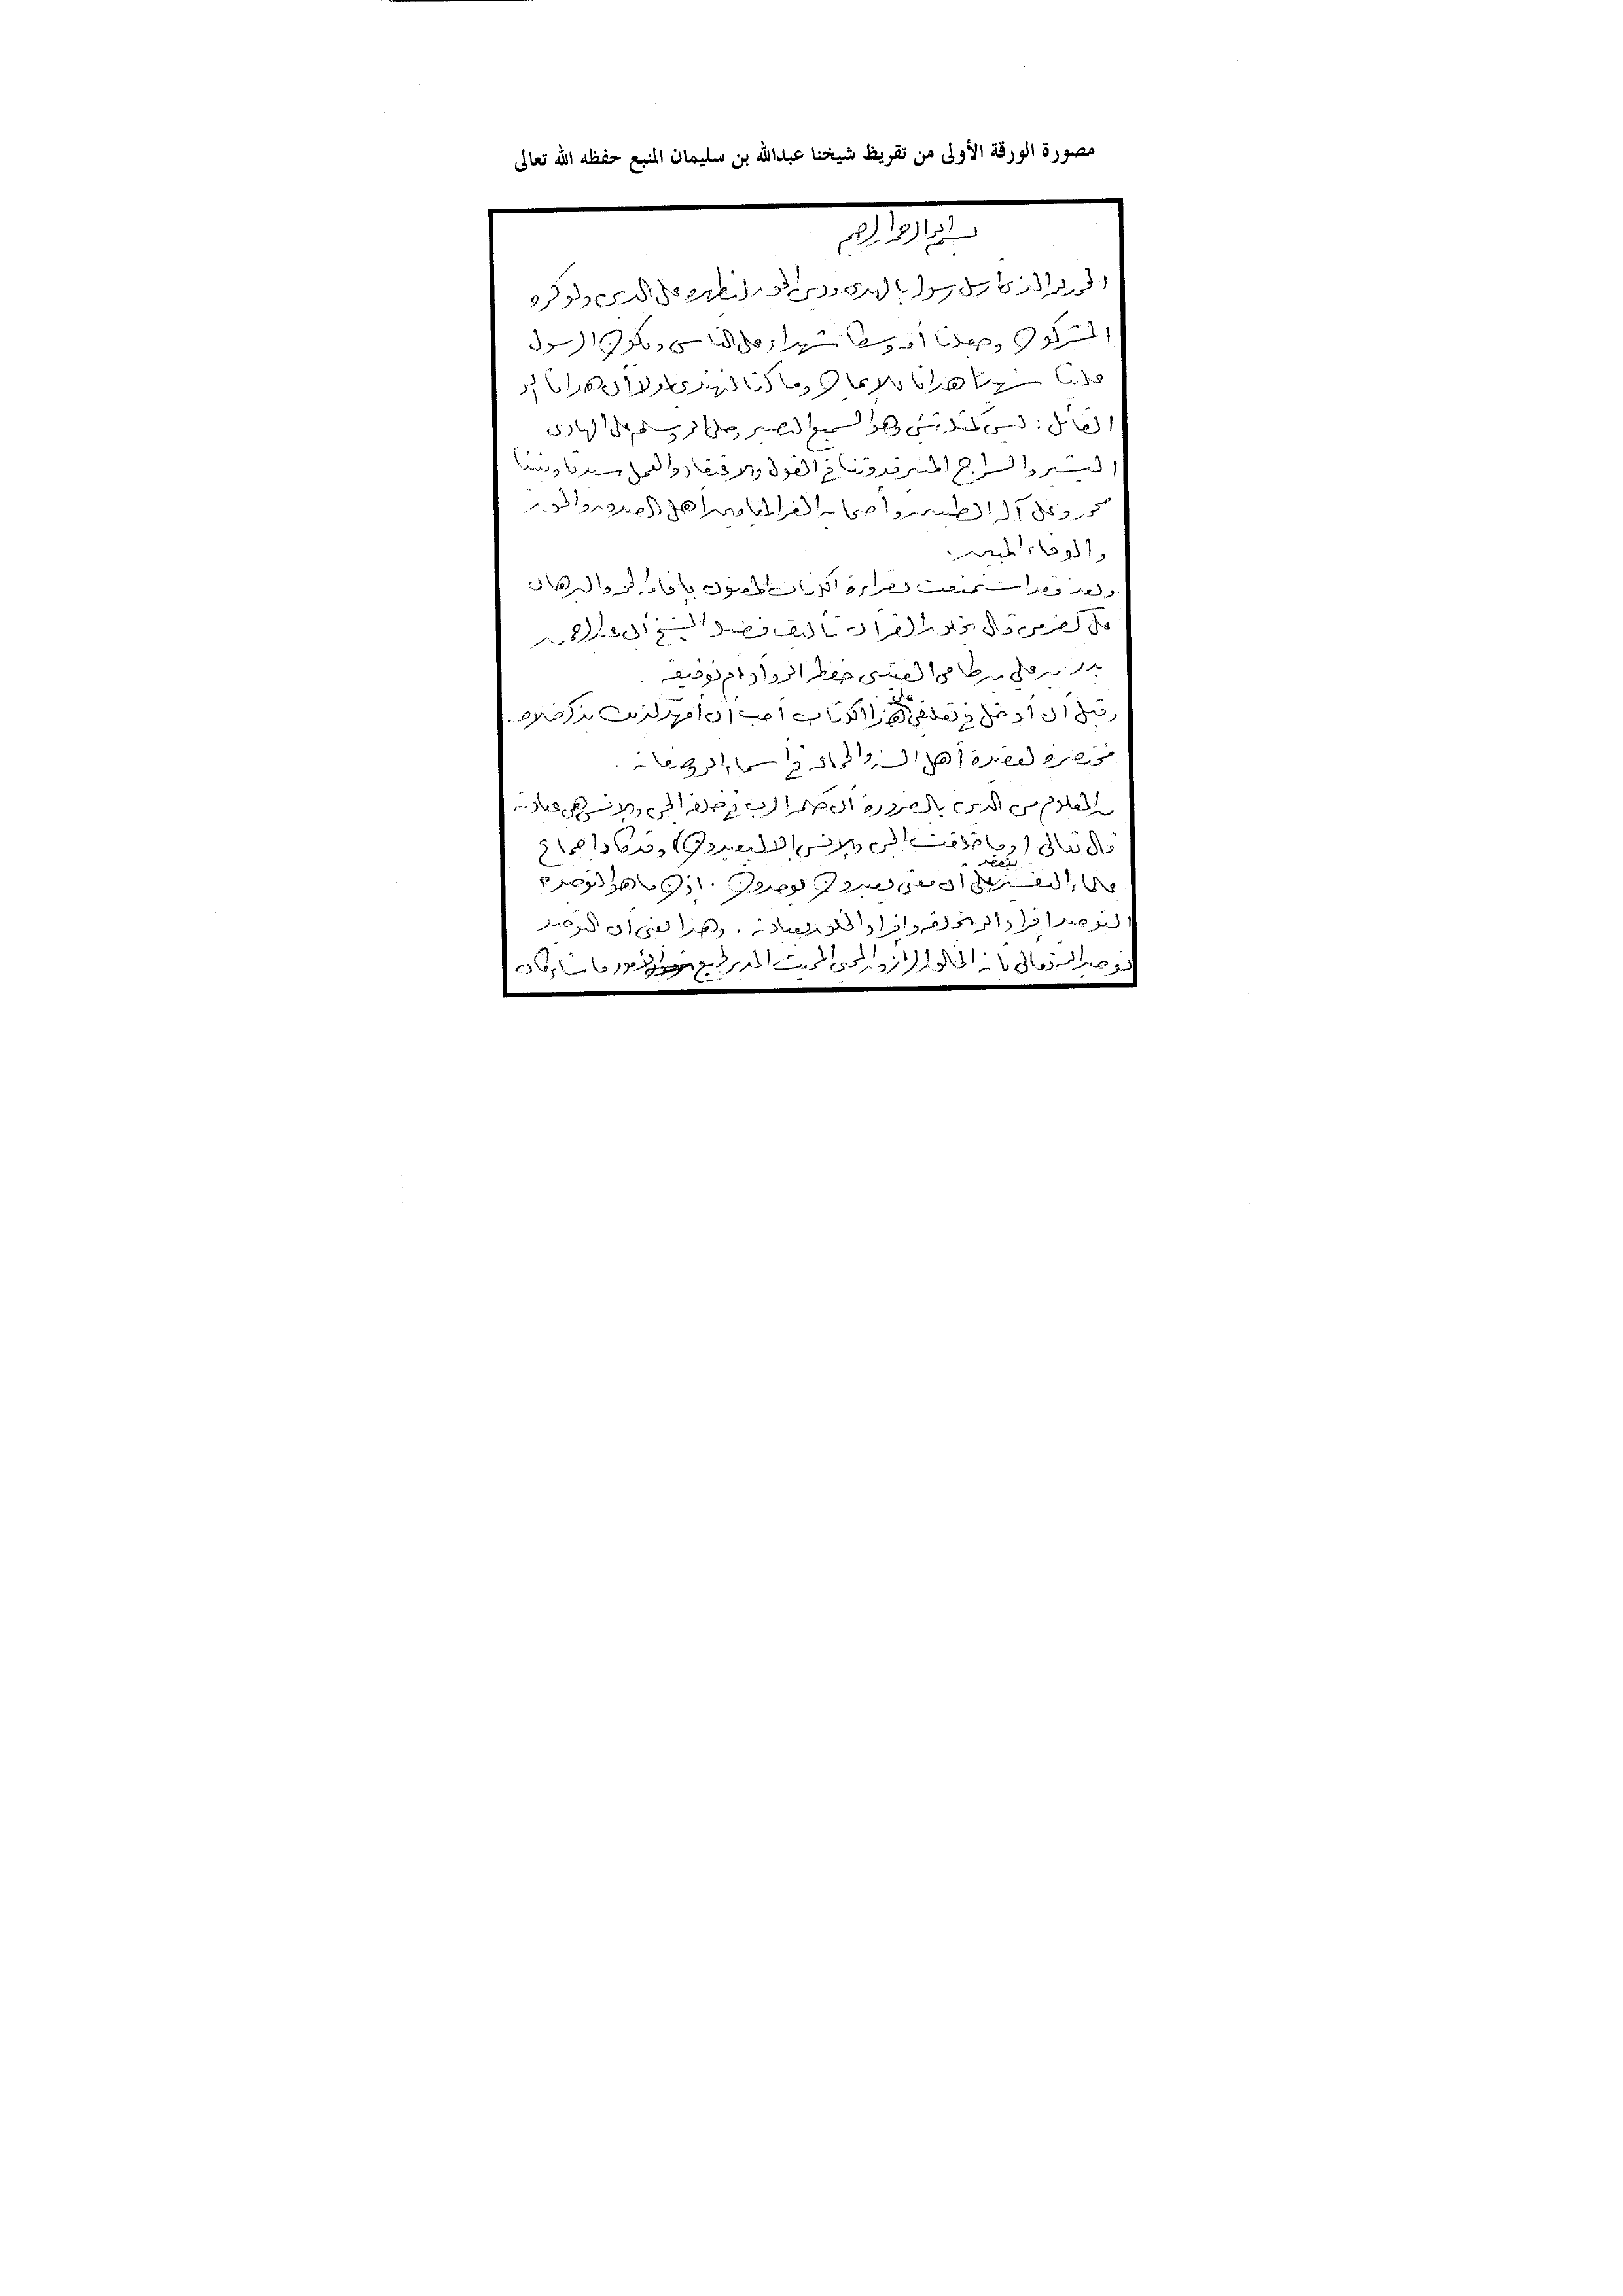 مصورة الورقة الأولى من تقريظ شيخنا عبدالله بن سليمان المنيع حفظه الله تعالى
بسم الله الرحمن الرحيم
الحمد لله الذي أرسل رسوله بالهدى ودين الحق ليظهره على الدين ولو كره
المشركون وجعلنا أمة وسطا شهداء على الناس ويكون الرسول
علينا شهيدا هدانا للإيمان وما كنا لنهتدي لولا أن هدانا الله
القائل: ليس كمثله شيء وهو السميع البصير وصلى الله وسلم على الهادي
البشير والسراج المنير قدوتنا في القول والاعتقاد والعمل سيدنا ونبينا
محمد وعلى آله الطيبين وأصحابه الغر الميامين أهل الصدق والحق
والوفاء المبين.
وبعد فقد استمتعت بقراءة الكتاب المعنون بإقامة الحجة والبرهان
على كفر من قال بخلق القرآن تأليف فضيلة الشيخ أبي عبدالرحمن
بدر بن علي بن طامي العتيبي حفظه الله وأدام توفيقه.
وقبل أن أدخل في تعليقي على هذا الكتاب أحب أن أمهد لذلك بذكر خلاصة
مختصرة لعقيدة أهل السنة والجماعة في أسماء الله وصفاته.
من المعلوم من الدين بالضرورة أن حكمة الرب في خلقه الجن والإنس هي عبادته
قال تعالى (وما خلقت الجن والإنس إلا ليعبدون) وقد كاد إجماع
علماء التفسير ينعقد على أن معنى يعبدون يوحدون. إذن ما هو التوحيد؟
التوحيد إفراد الله بخلقه وإفراد الخلق بعبادته. وهذا يعني أن التوحيد
توحيد الله تعالى بأنه الخالق الرازق المحيي المميت المدبر لجميع الأمور ما شاء كان